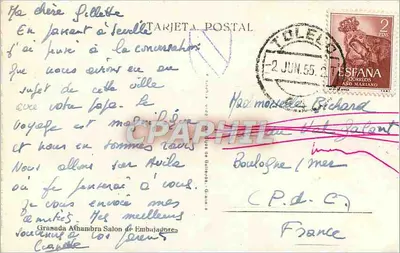 TARJETA POSTAL
Ma chère Gillette
En passant à Séville
j'ai pensé à la conversation
que nous avions eu au
sujet de cette ville
avec votre papa. Le
voyage est magnifique
et nous en sommes ravis
Nous allons sur Avila
où je penserai à vous.
Je vous envoie mes
amitiés. Mes meilleurs
souvenirs à vos parents
TOLEDO
-2 JUN. 55
2
PTAS
ESPAÑA
CORREOS
AÑO MARIANO
Mademoiselle Richard
Boulogne s/mer
(P. d. C.)
France
CPAPHIL
Granada Alhambra Salon de Embajadores